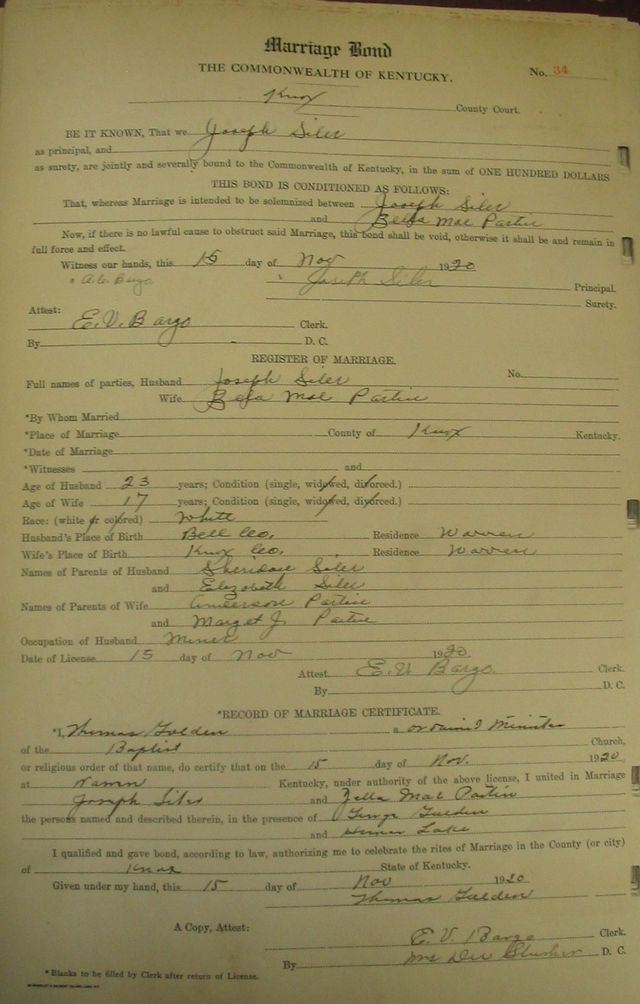 Marriage Bond
THE COMMONWEALTH OF KENTUCKY.
No. 34
Knox County Court.
BE IT KNOWN, That we Joseph Siler
as principal, and
as surety, are jointly and severally bound to the Commonwealth of Kentucky, in the sum of ONE HUNDRED DOLLARS
THIS BOND IS CONDITIONED AS FOLLOWS:
That, whereas Marriage is intended to be solemnized between Joseph Siler
and Mae Partin
Now, if there is no lawful cause to obstruct said Marriage, this bond shall be void, otherwise it shall be and remain in
full force and effect.
Witness our hands, this 15 day of Nov 1920
Bargo Joseph Siler Principal.
Surety.
Attest:
E. V. Bargo Clerk.
By D. C.
REGISTER OF MARRIAGE.
Full names of parties, Husband Joseph Siler No.
Wife Mae Partin
*By Whom Married
*Place of Marriage County of Knox Kentucky.
*Date of Marriage
*Witnesses and
Age of Husband 23 years; Condition (single, widowed, divorced.)
Age of Wife 17 years; Condition (single, widowed, divorced.)
Race: (white or colored) White
Husband's Place of Birth Bell Co. Residence Warren
Wife's Place of Birth Knox Co. Residence Warren
Names of Parents of Husband Sheridan Siler
and Elizabeth Siler
Names of Parents of Wife Anderson Partin
and Marget J. Partin
Occupation of Husband Miner
Date of License 15 day of Nov 1920
Attest E. V. Bargo Clerk.
By D. C.
*RECORD OF MARRIAGE CERTIFICATE.
*I, Thomas Golden a Minister
of the Baptist Church,
or religious order of that name, do certify that on the 15 day of Nov. 1920
at Warren Kentucky, under authority of the above license, I united in Marriage
Joseph Siler and Zella Mae Partin
the persons named and described therein, in the presence of George Golden
and Lake
I qualified and gave bond, according to law, authorizing me to celebrate the rites of Marriage in the County (or city)
of Knox State of Kentucky.
Given under my hand, this 15 day of Nov 1920
Thomas Golden
A Copy, Attest:
E. V. Bargo Clerk.
By Mrs Dee Slusher D. C.
*Blanks to be filled by Clerk after return of License.